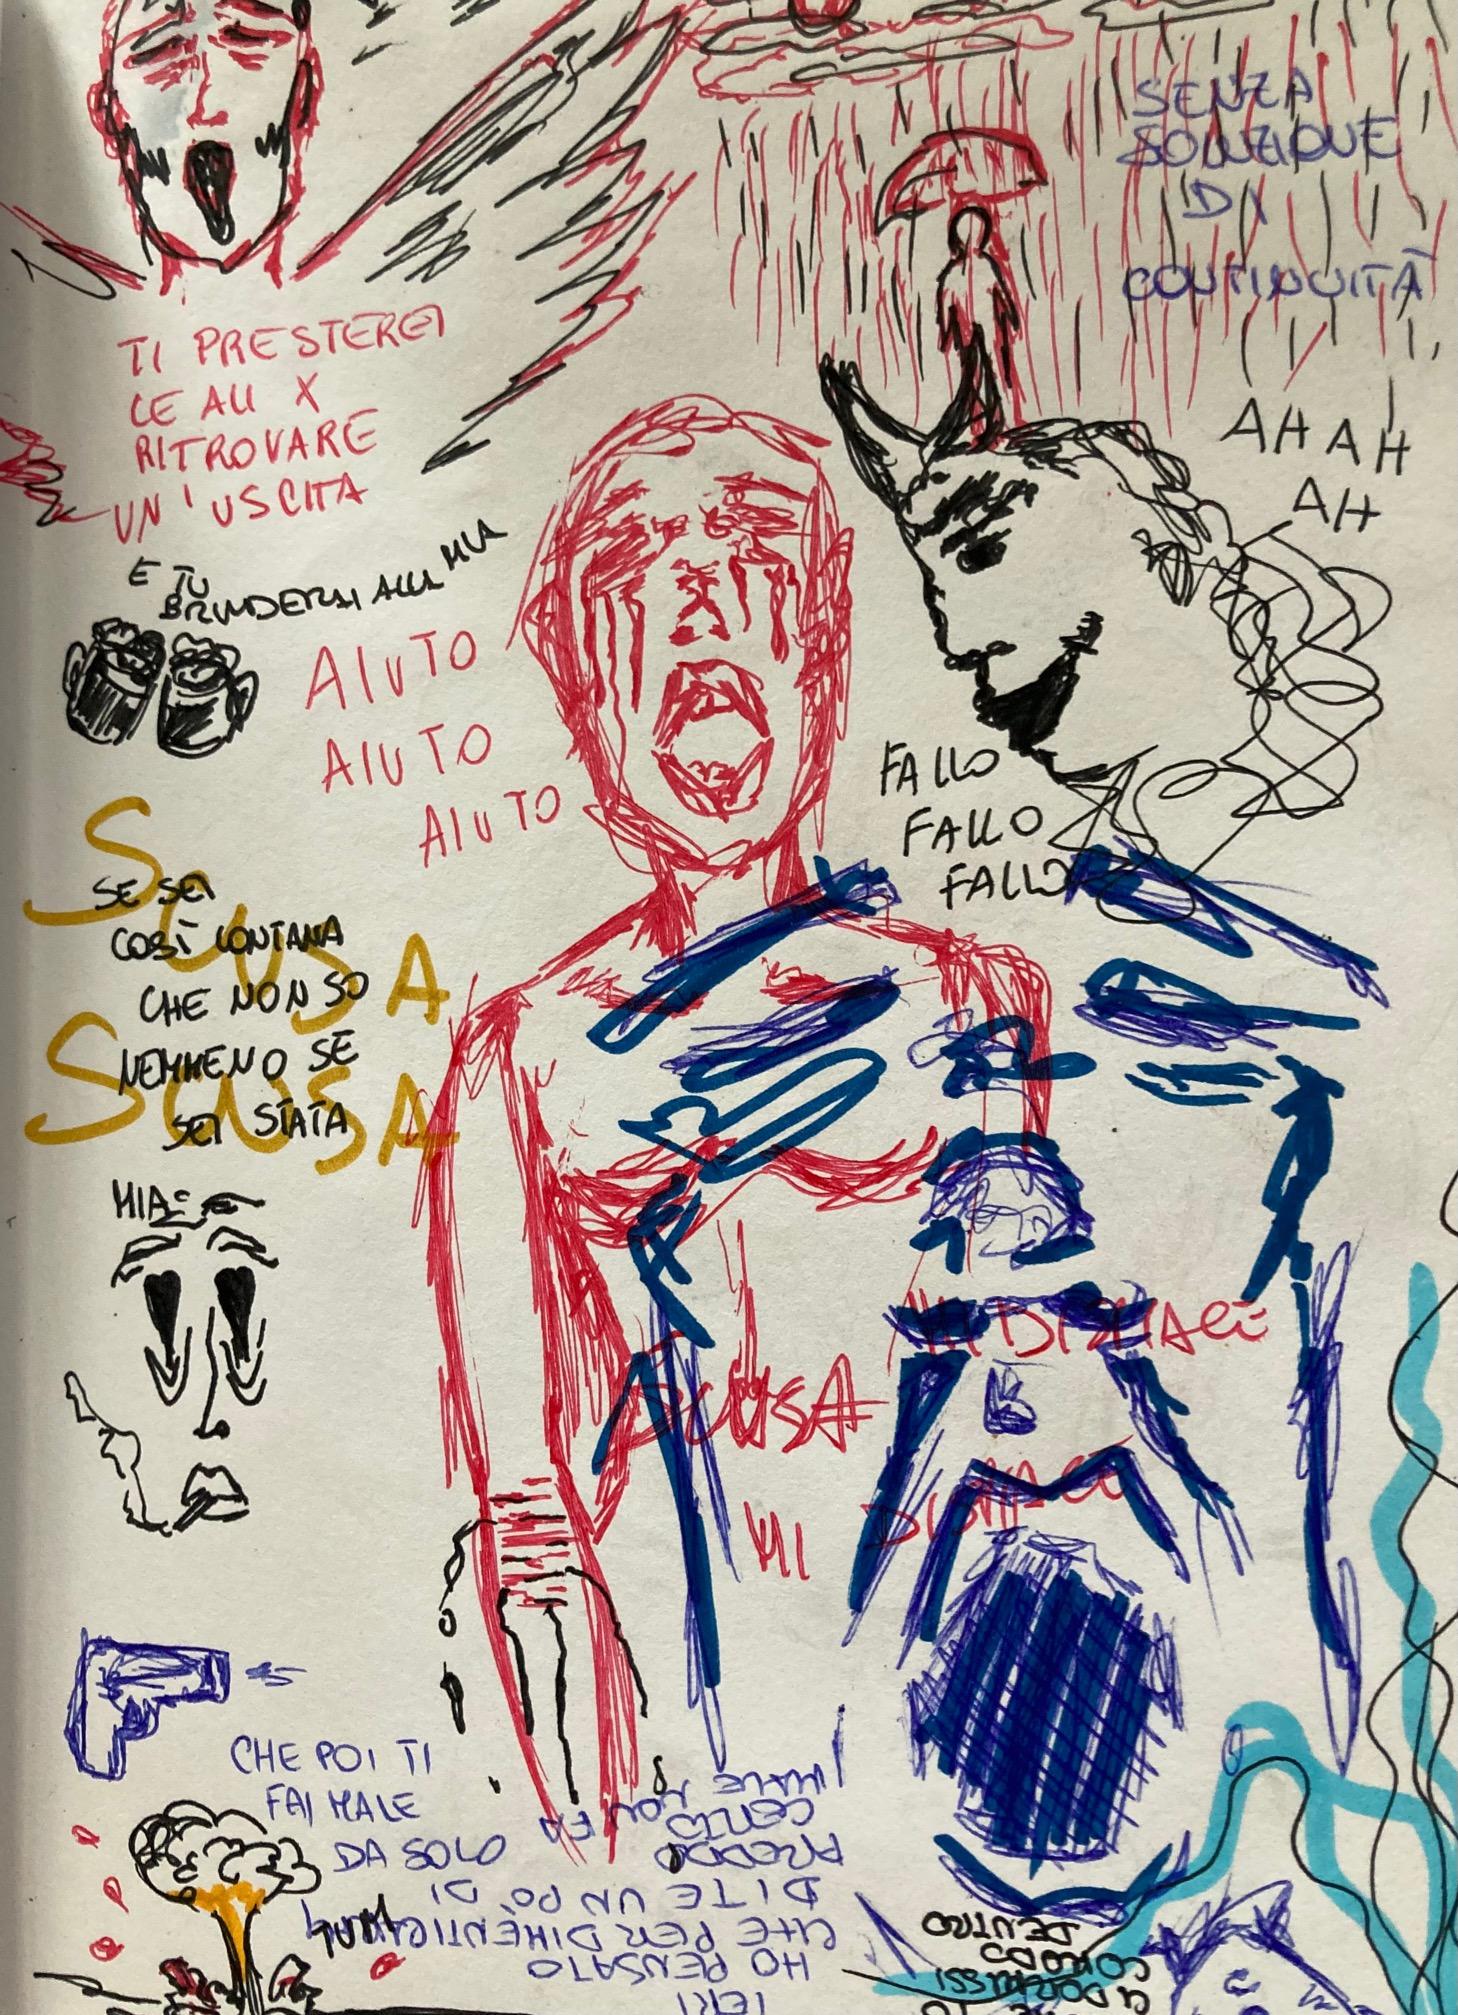 SENZA
SOLUZIONE
DI
CONTINUITÀ
TI PRESTEREI
LE ALI X
RITROVARE
UN'USCITA
AH AH
AH
E TU
BRINDERAI ALLA MIA
AIUTO
AIUTO
AIUTO
FALLO
FALLO
FALLO
SCUSA
SCUSA
SE SEI
COSÌ LONTANA
CHE NON SO
NEMMENO SE
SEI STATA
MIA
MI DISPIACE
SCUSA
MI DISPIACE
CHE POI TI
FAI MALE
DA SOLO
IERI
HO PENSATO
CHE PER DIMENTICARMI
DI TE UN PO DI
FREDDO
CERTO NON FA
MALE
DENTRO